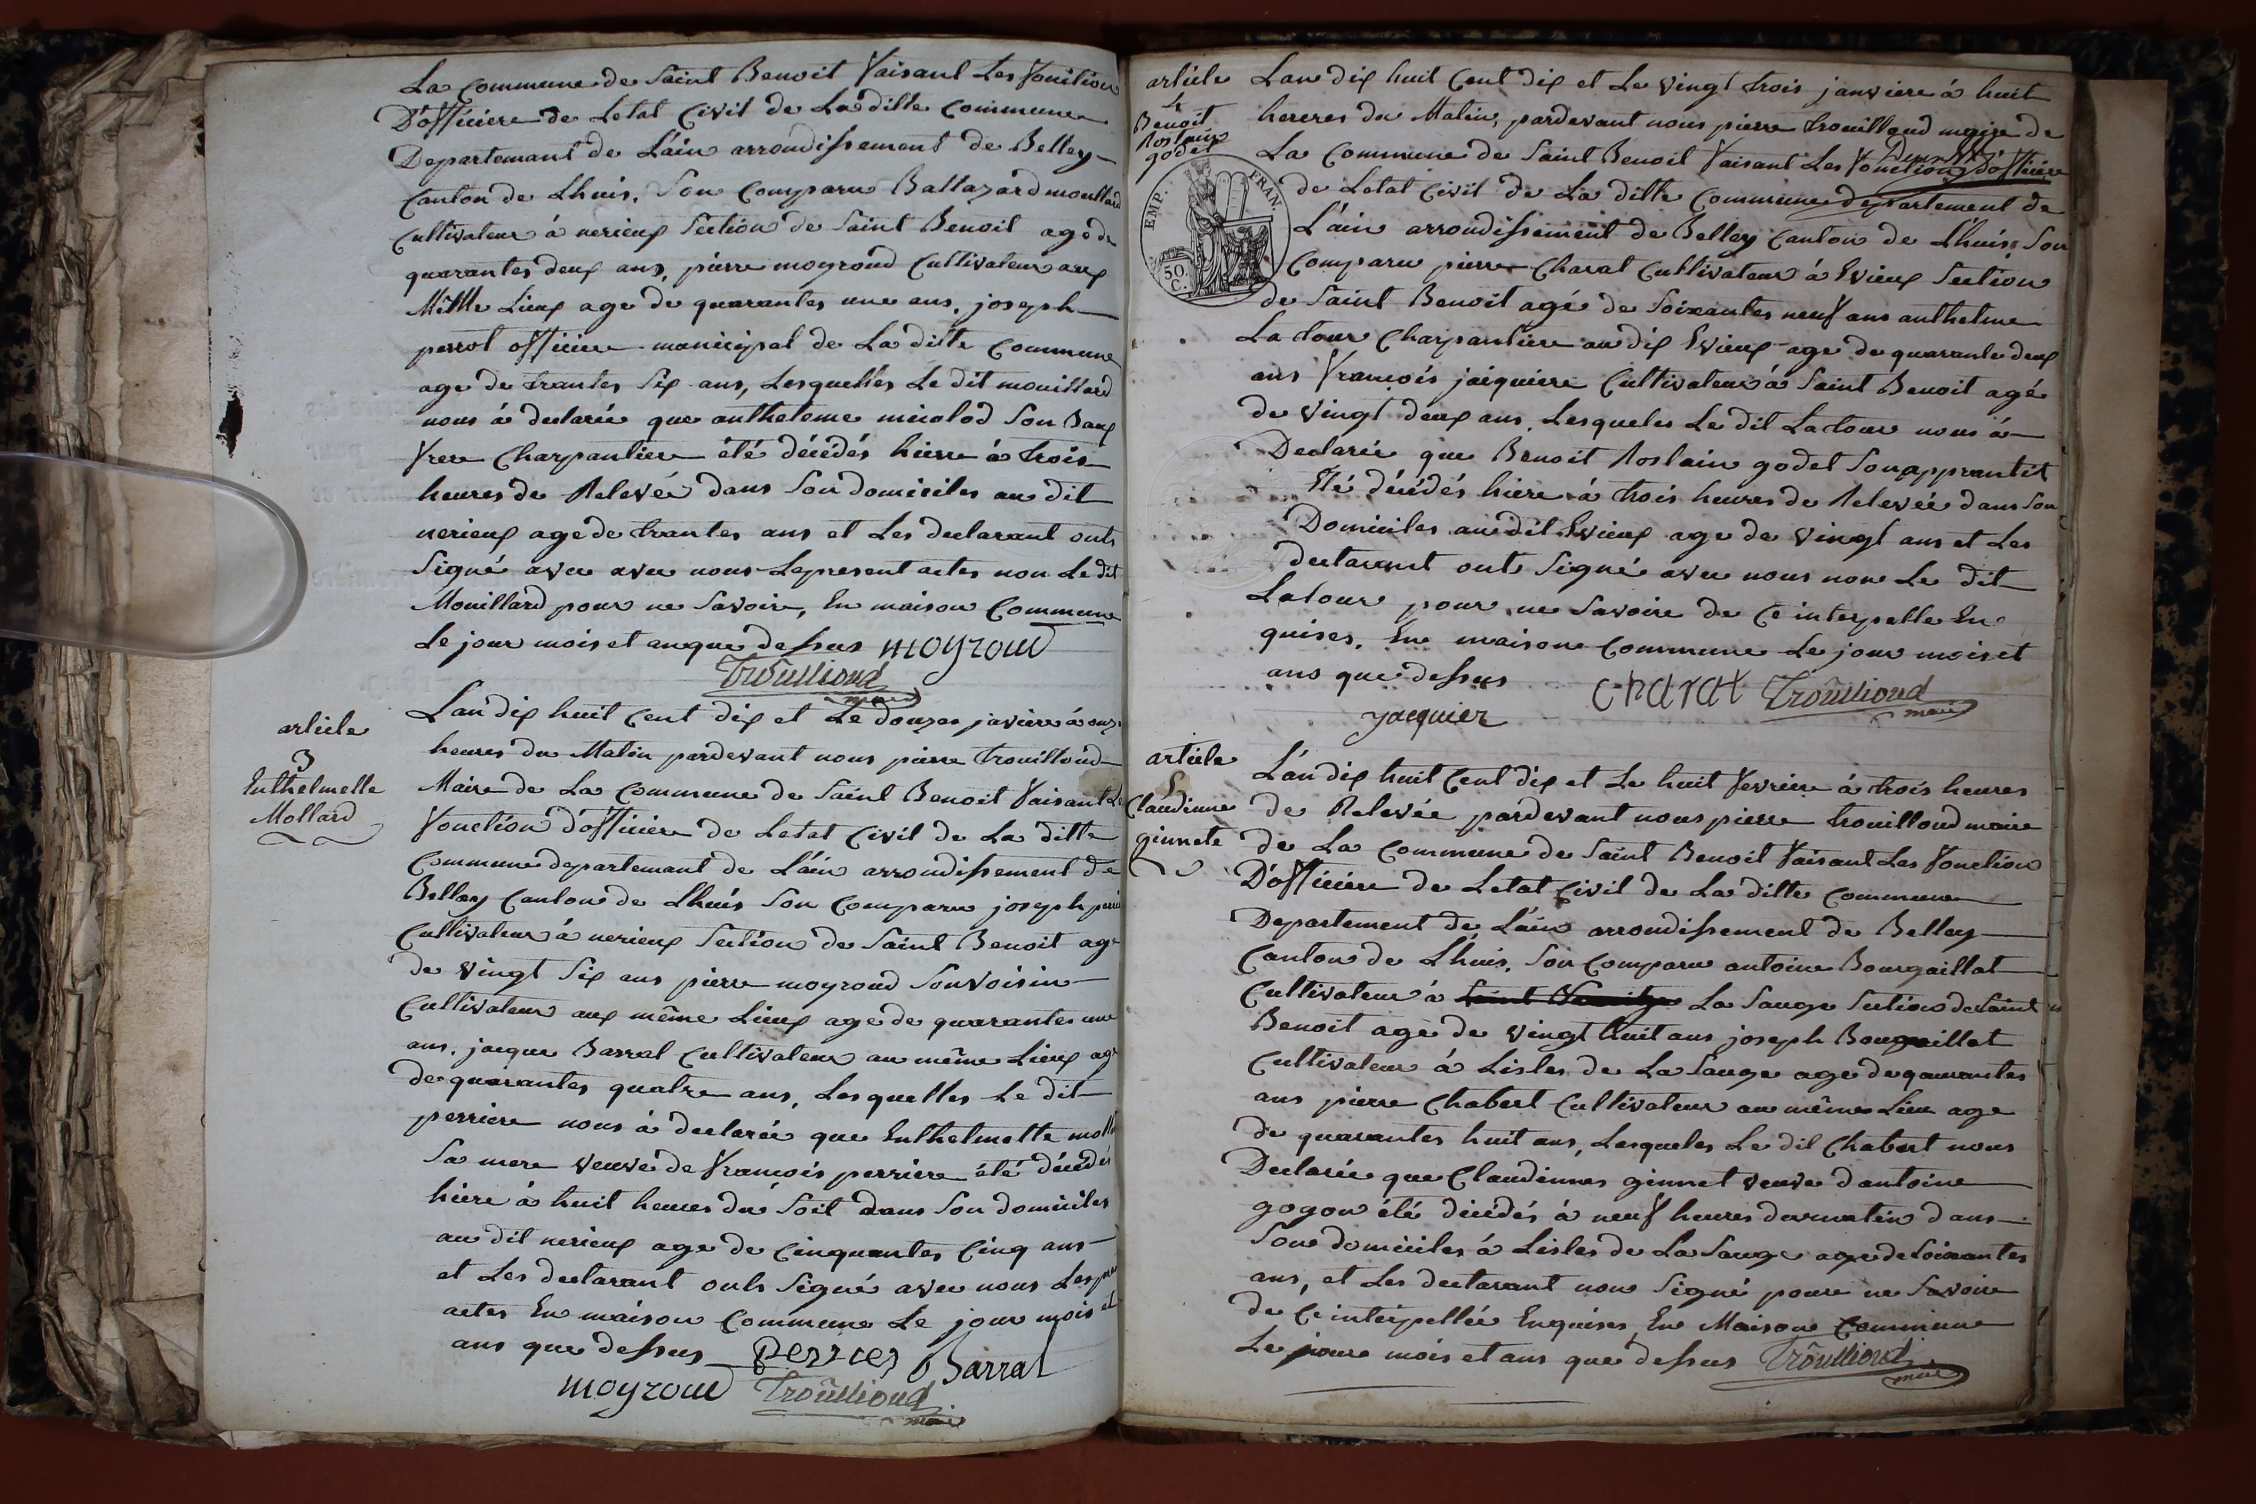 La commune de Saint Benoit Faisant Les Fonition
D'officiere de Letat Civil de La ditte Commune
Departemant de L'ain arrondissement de Belley
Canton de Lhuis. Son Comparu Baltazard mouillard
Cultivateur à nerieux Section de Saint Benoit age de
quarantes deux ans, pierre moyroud Cultivateur aux
Même Lieux age de quarantes une ans, joseph
perrot officiere municipal de La ditte Commune
age de trantes Six ans, Lesquelles Le dit mouillard
nous à declarée que antheleme micolod Son Baux
frere Charpantiere été décédés hiere à trois
heures de Relevée dans Son domiciles au dit
nerieux age de trantes ans et Les declarant onts
Signé avec avec nous Le present actes non Le dit
Mouillard pour ne Savoir, En maison Commune
Le jour mois et an que dessus moyroud
Troulliond
maire
article
3
Enthelmelle
Mollard
L'an dix huit Cent dix et Le douzes javiere à onze
heures du Matin pardevant nous pierre trouilloud
Maire de La Commune de Saint Benoit Faisant Le
Fonction d'officiere de Letat Civil de La ditte
Commune departemant de L'ain arrondissement de
Belley Canton de Lhuis Son Comparu joseph perriere
Cultivateur à nerieux Section de Saint Benoit age
de vingt Six ans pierre moyroud Son voisin
Cultivateur aux même Lieux age de quarantes une
ans. jacque Barral Cultivateur au même Lieux age
de quarantes quatre ans, Lesquelles Le dit
perriere nous à declarée que Enthelmette mollard
Sa mere veuve de François perriere été décédés
hiere à huit heures du Soit dans Son domiciles
au dit nerieux age de Cinquantes Cinq ans
et Les declarant onts Signé avec nous Les pre
actes En maison Commune Le jour mois et
ans que dessus perrier Barral
moyroud Troulliond
maire
article
4
Benoit
Roslain
godet
EMP. FRAN.
50
C.
L'an dix huit Cent dix et Le vingt trois janviere à huit
hereres du Matin, pardevant nous pierre trouilloud maire de
La Commune de Saint Benoit Faisant Les Fonction d'officiere
de Letat Civil de La ditte Commune departement de
L'ain arrondissement de Belley Canton de Lhuis Son
Comparu pierre Charat Cultivateur à Evieux Section
de Saint Benoit agé de Soixantes neuf ans anthelme
La tour Charpantiere au dix Evieux age de quarante deux
ans François jaiquiere Cultivateur à Saint Benoit agé
de vingt deux ans. Lesqueles Le dit La tour nous à
Declarée que Benoit Roslain godet Son apprantit
Eté décédés hiere à trois heures de Relevée dans Son
Domiciles au dit Evieux age de vingt ans et Les
declarant onts Signé avec nous non Le dit
Latour pour ne Savoire de Ce interpelle En
quises. En maisone Commune Le jour mois et
ans que dessus charat Troulliond
maire
jacquier
article
5
Claudinne
ginnete
L'an dix huit Cent dix et Le huit Fevriere à trois heures
de Relevée pardevant nous pierre trouilloud maire
de La Commune de Saint Benoit Faisant Les Fonction
D'officiere de Letat Civil de La ditte Commune
Departement de L'ain arrondissement de Belley
Canton de Lhuis, Son Comparu antoine Bourgaillat
Cultivateur à La Sauge Section de Saint
Benoit agé de vingt huit ans joseph Bougaillat
Cultivateur à Lisles de La Sauge age de qaurantes
ans pierre Chabert Cultivateur au mêmes Lieu age
de quarantes huit ans, Lesqueles Le dit Chabert nous
Declarée que Claudinnes ginnet veuve d'antoine
gogon été décédés à neuf heures du matin dans
Son domiciles à Lisles de La Sauge age de Soixantes
ans, et Les declarant non Signé poure ne Savoire
de Ce interpellée Enquises, En Maison Commune
Le joure mois et ans que dessus Troulliond
maire